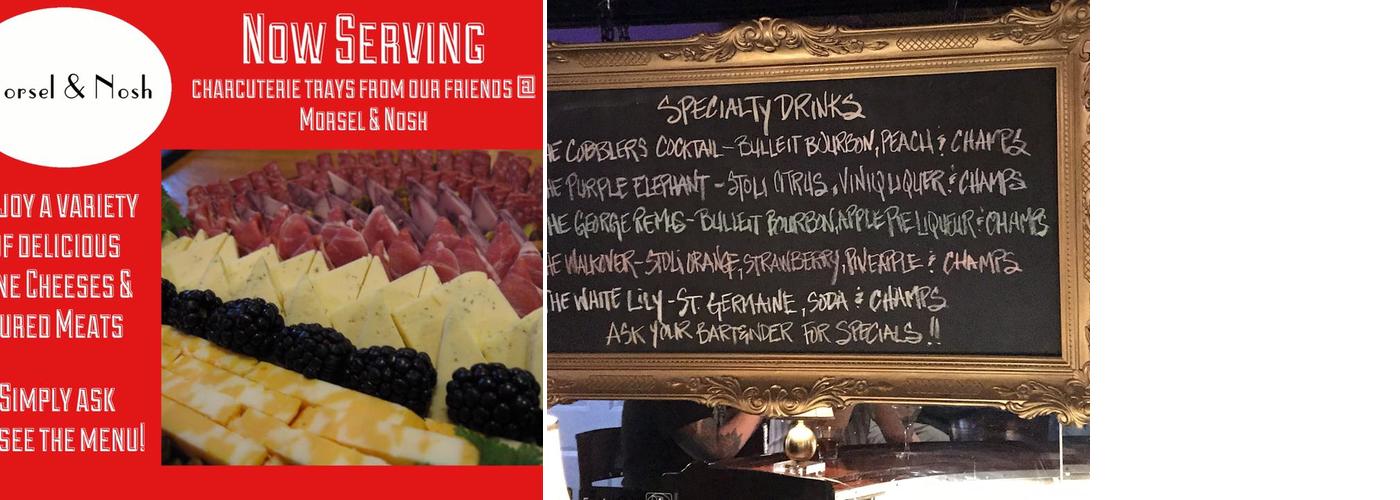 orsel & Nosh
Now Serving
charcuterie trays from our friends @
Morsel & Nosh
joy a variety
of delicious
ne Cheeses &
ured Meats
Simply ask
see the menu!
Specialty Drinks
he Cobblers Cocktail - Bulleit Bourbon, Peach & Champs
he Purple Elephant - Stoli Citrus, Viniq Liquer & Champs
he George Remus - Bulleit Bourbon, Apple Pie Liqueur & Champs
he Walkover - Stoli Orange, Strawberry, Pineapple & Champs
The White Lily - St. Germaine, Soda & Champs
Ask your bartender for specials!!